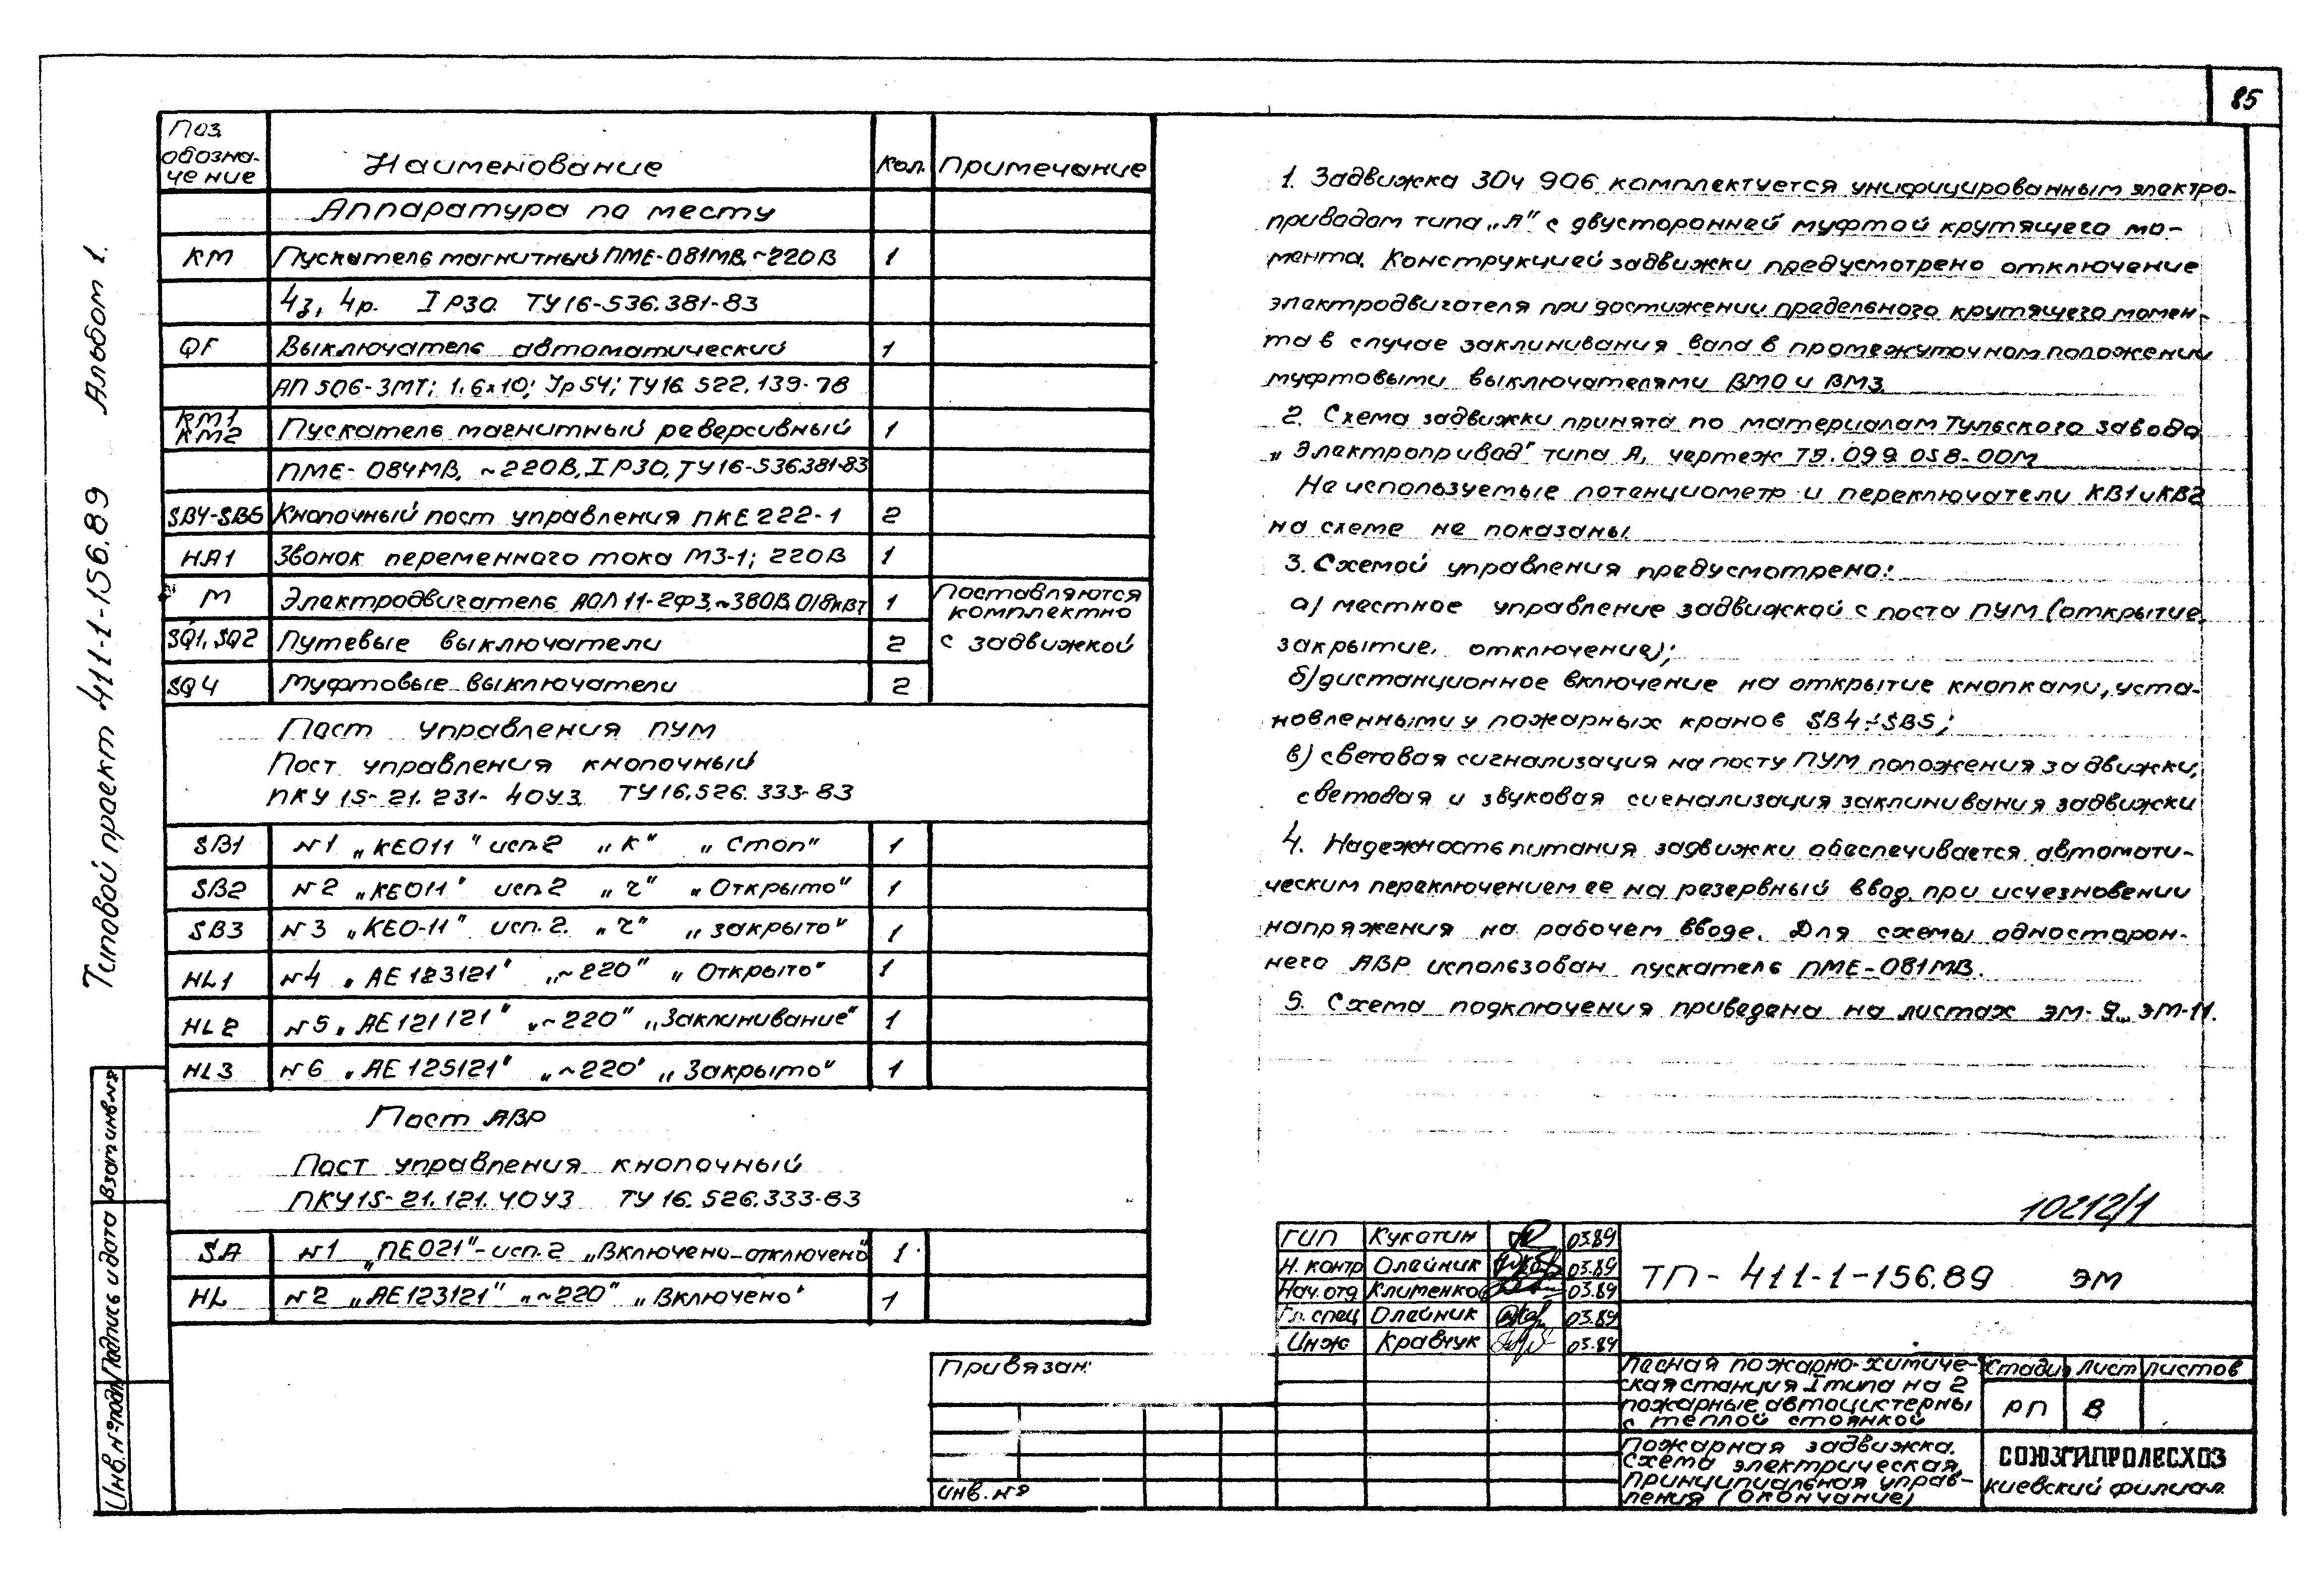 85
Типовой проект 411-1-156.89 Альбом 1.
Поз. обозна-чение | Наименование | Кол. | Примечание
Аппаратура по месту
КМ | Пускатель магнитный ПМЕ-081МВ, ~220В | 1
4з, 4р. IP30 ТУ16-536.381-83
QF | Выключатель автоматический | 1
АП 506-3МТ; 1.6х10; Ур54; ТУ16 522.139-78
КМ1 КМ2 | Пускатель магнитный реверсивный | 1
ПМЕ-084МВ, ~220В, IP30, ТУ16-536.381-83
SB4-SB5 | Кнопочный пост управления ПКЕ 222-1 | 2
НА1 | Звонок переменного тока МЗ-1; 220В | 1
М | Электродвигатель АОЛ 11-2Ф3, ~380В, 0,18кВт | 1 | Поставляются комплектно
SQ1, SQ2 | Путевые выключатели | 2 | с задвижкой
SQ4 | Муфтовые выключатели | 2
Пост управления ПУМ
Пост управления кнопочный
ПКУ 15-21.231-40У3 ТУ16.526.333-83
SB1 | №1 „КЕ011" исп.2 „К" „Стоп" | 1
SB2 | №2 „КЕ011" исп.2 „Ч" „Открыто" | 1
SB3 | №3 „КЕО-11" исп.2. „Ч" „закрыто" | 1
HL1 | №4 „АЕ 123121" „~220" „Открыто" | 1
HL2 | №5 „АЕ 121121" „~220" „Заклинивание" | 1
HL3 | №6 „АЕ 125121" „~220" „Закрыто" | 1
Пост АВР
Пост управления кнопочный
ПКУ15-21.121.40У3 ТУ 16.526.333-83
SA | №1 „ПЕ021"-исп.2 „Включено-отключено" | 1
HL | №2 „АЕ123121" „~220" „Включено" | 1
1. Задвижка 30ч 906 комплектуется унифицированным электро-
приводом типа „А" с двусторонней муфтой крутящего мо-
мента. Конструкцией задвижки предусмотрено отключение
электродвигателя при достижении предельного крутящего момен-
та в случае заклинивания вала в промежуточном положении
муфтовыми выключателями ВМО и ВМЗ.
2. Схема задвижки принята по материалам Тульского завода
„Электропривод" типа А, чертеж ТЭ.099.058-00М
Не используемые потенциометр и переключатели КВ1 и КВ2
на схеме не показаны.
3. Схемой управления предусмотрено:
а) местное управление задвижкой с поста ПУМ (открытие,
закрытие, отключение);
б) дистанционное включение на открытие кнопками, уста-
новленными у пожарных кранов SB4÷SB5;
в) световая сигнализация на посту ПУМ положения задвижки,
световая и звуковая сигнализация заклинивания задвижки
4. Надежность питания задвижки обеспечивается автомати-
ческим переключением ее на резервный ввод, при исчезновении
напряжения на рабочем вводе. Для схемы односторон-
него АВР использован пускатель ПМЕ-081МВ.
5. Схема подключения приведена на листах ЭМ-9... ЭМ-11.
10212/1
ГИП | Кукотин | 03.89
Н. контр | Олейник | 03.89
Нач. отд | Клименко | 03.89
Гл. спец | Олейник | 03.89
Инж | Кравчук | 03.89
ТП-411-1-156.89 ЭМ
Лесная пожарно-химиче-
ская станция I типа на 2
пожарные автоцистерны
с теплой стоянкой
Стадия | лист | листов
РП | 8
Пожарная задвижка.
Схема электрическая
принципиальная управ-
ления (окончание)
СОЮЗГИПРОЛЕСХОЗ
Киевский филиал
Привязан:
Инв. №
Взам инв.№
Подпись и дата
Инв. № подл